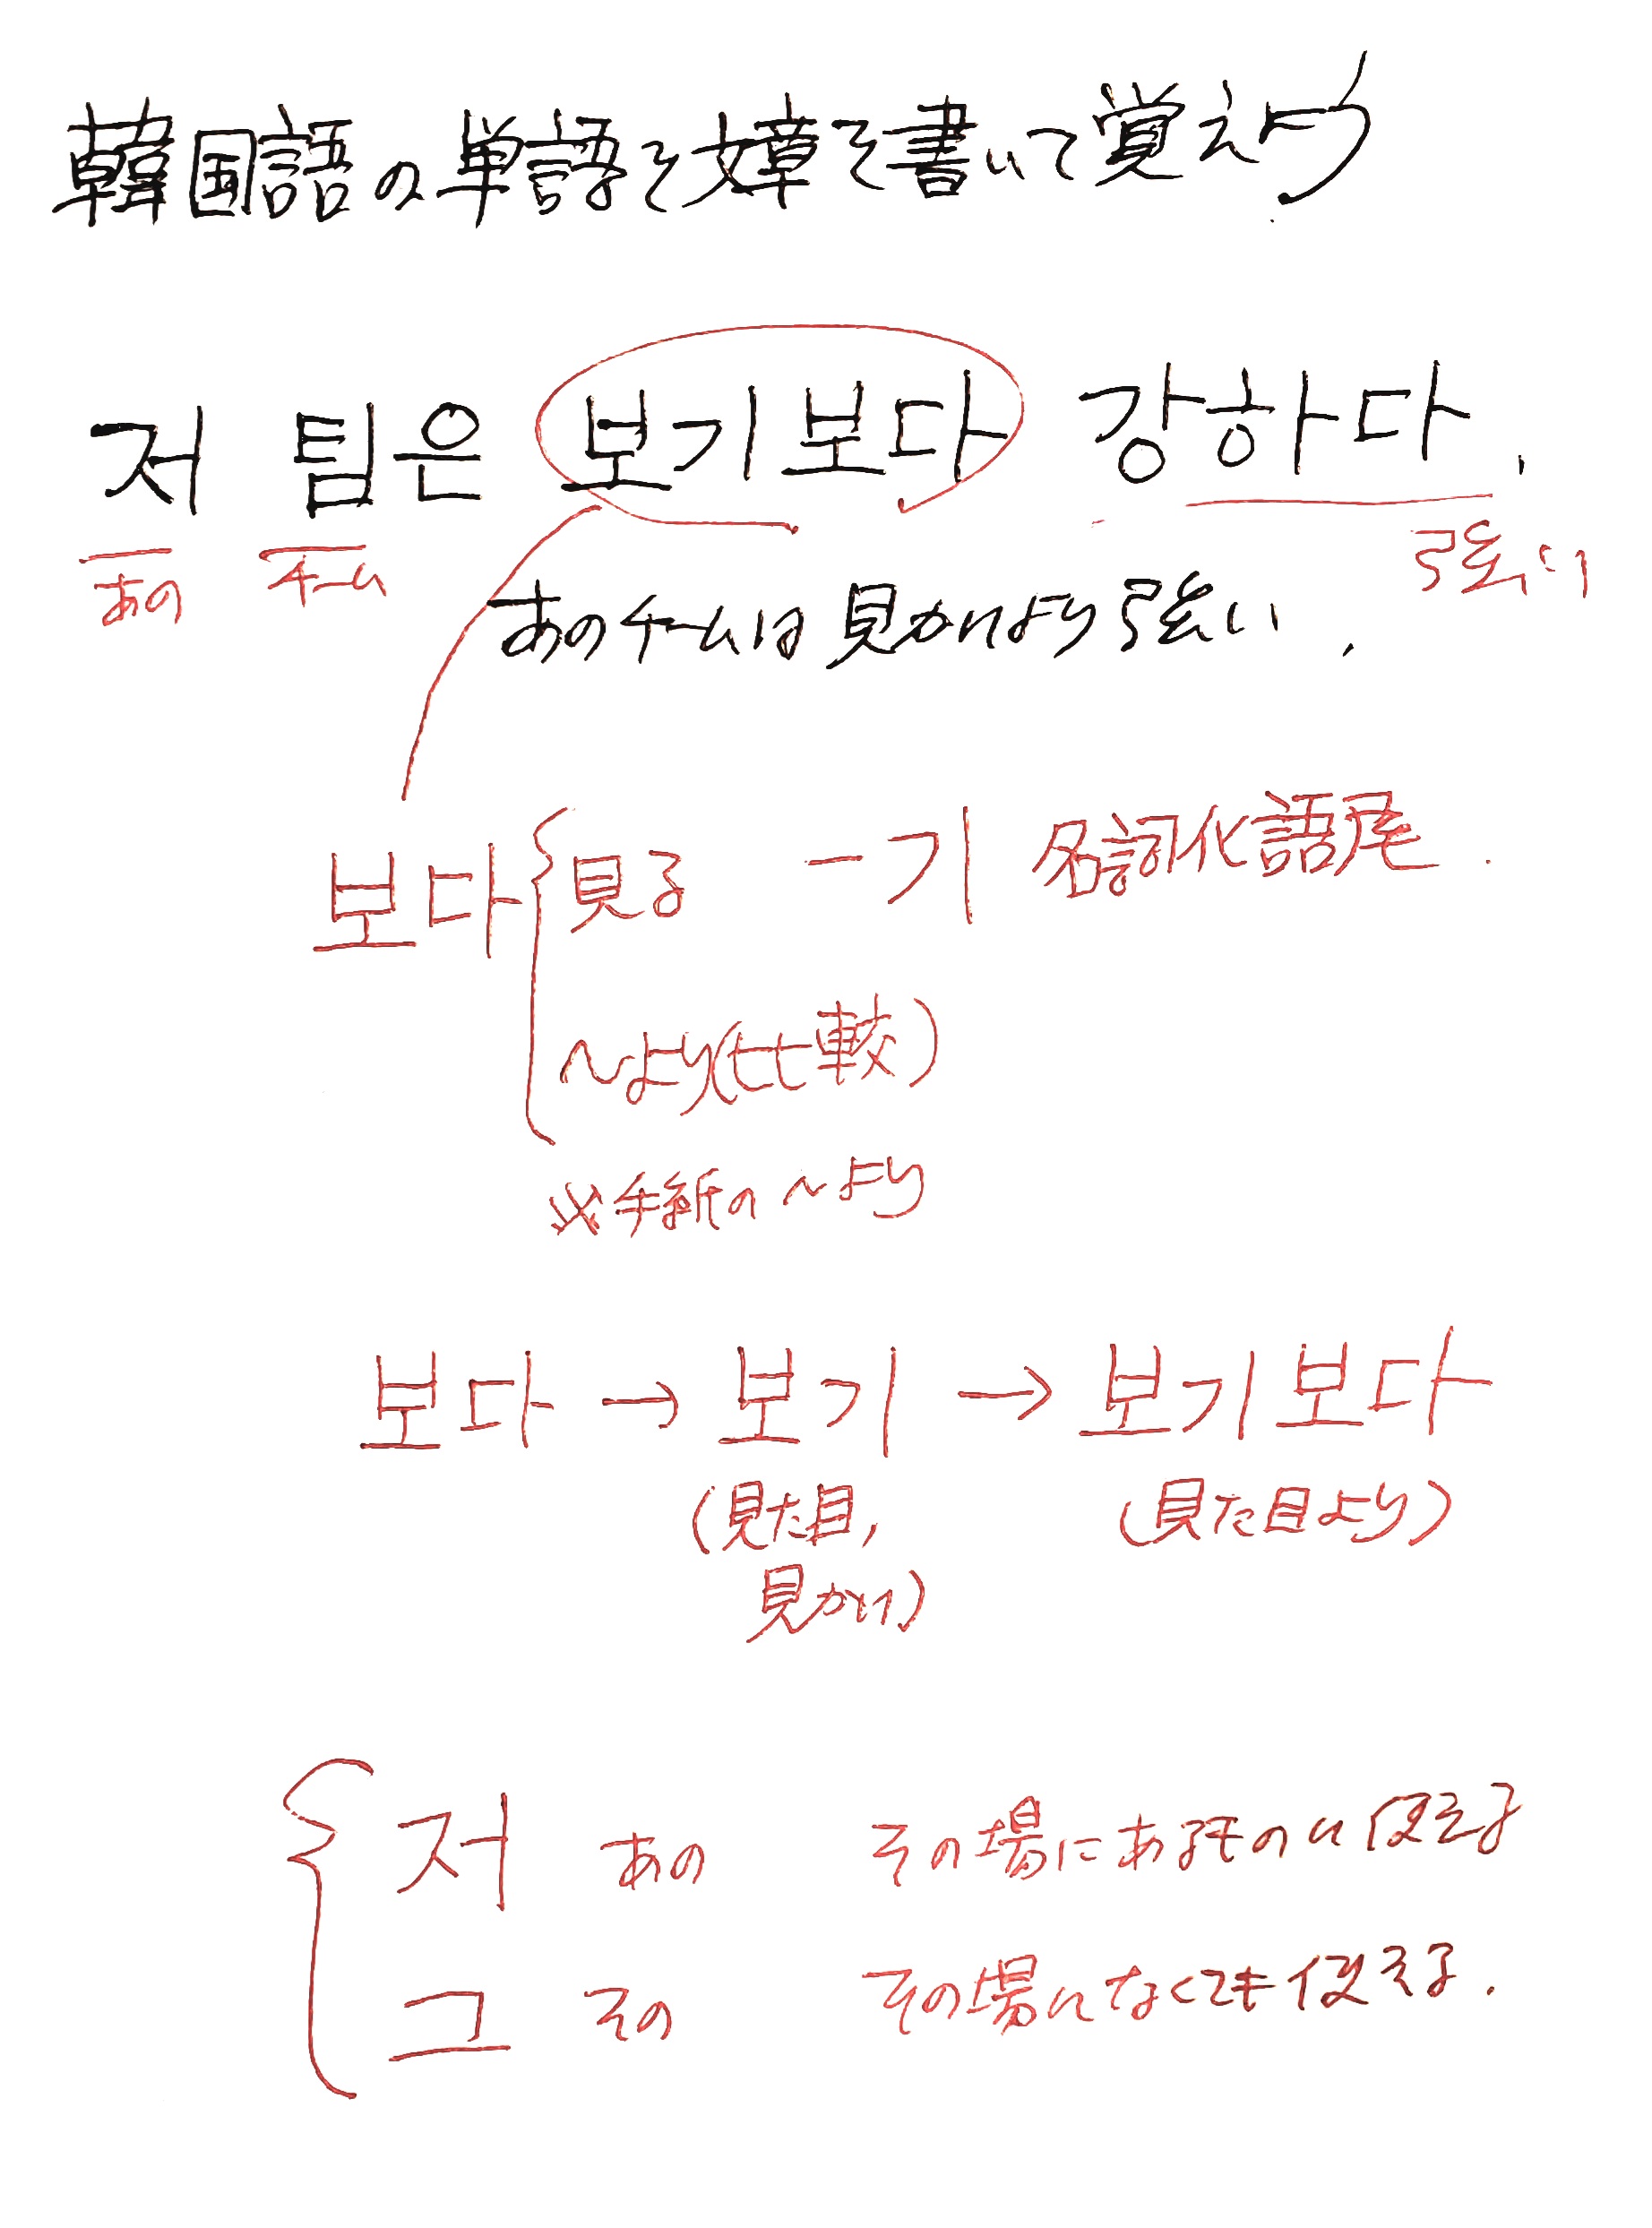 韓国語の単語を文章を書いて覚えよう
저 팀은 보기보다 강하다.
あの チーム 強い
あのチームは見かけより強い.
보다 見る -기 名詞化語尾.
~より(比較)
※手紙の~より
보다 → 보기 → 보기보다
(見た目, (見た目より)
見かけ)
저 あの その場にあるものに使える
그 その その場になくても使える.